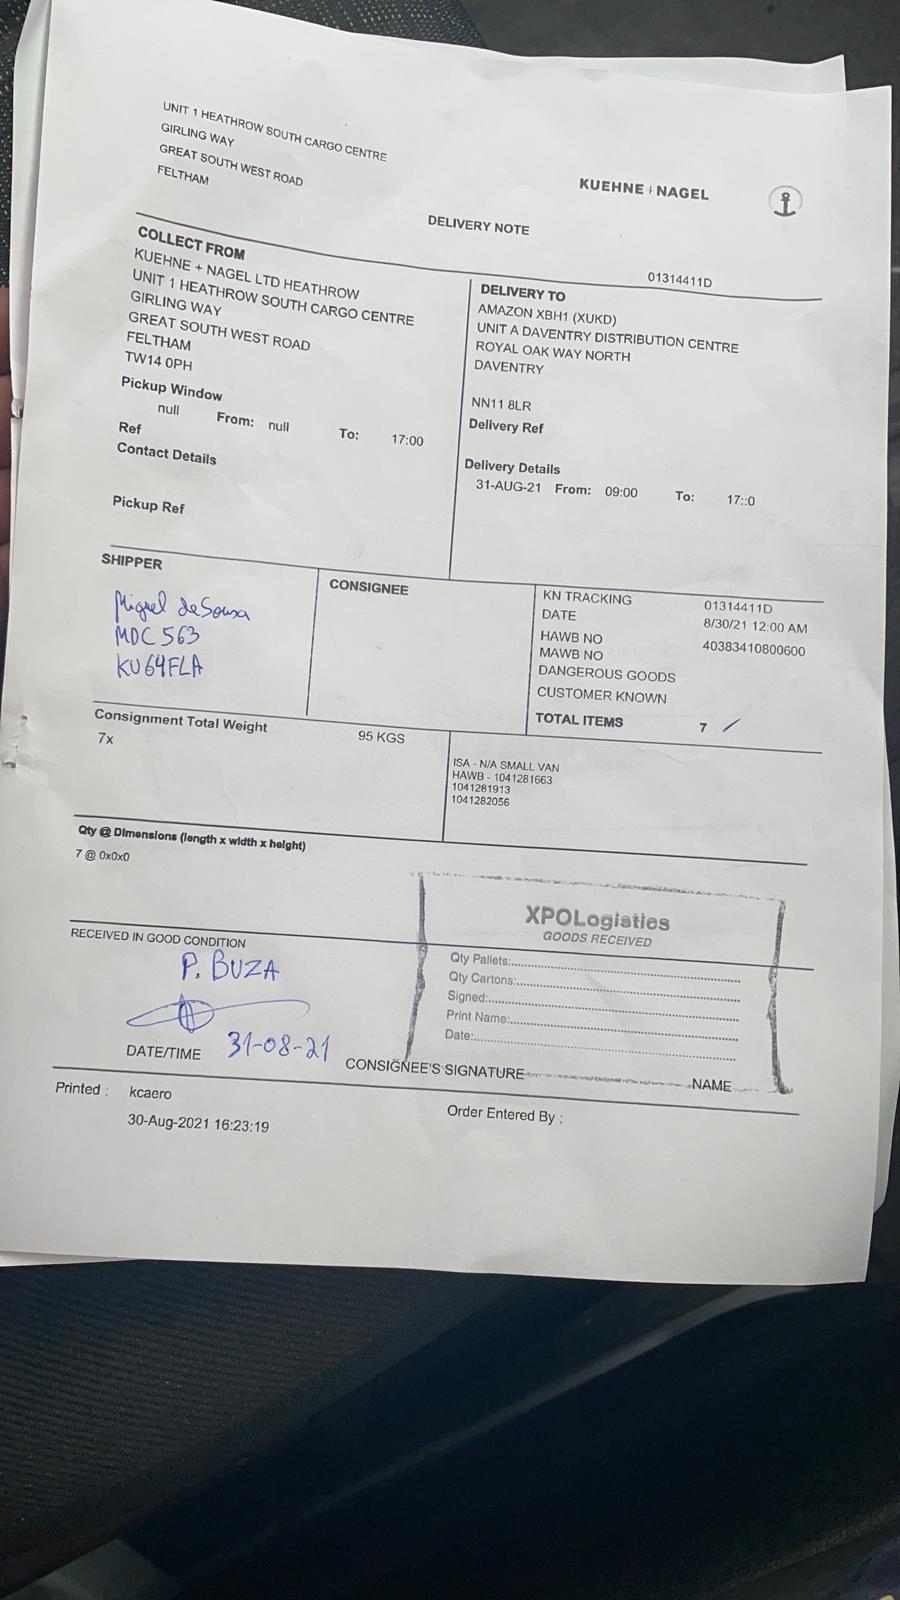 UNIT 1 HEATHROW SOUTH CARGO CENTRE
GIRLING WAY
GREAT SOUTH WEST ROAD
FELTHAM
KUEHNE + NAGEL
DELIVERY NOTE
01314411D
COLLECT FROM
KUEHNE + NAGEL LTD HEATHROW
UNIT 1 HEATHROW SOUTH CARGO CENTRE
GIRLING WAY
GREAT SOUTH WEST ROAD
FELTHAM
TW14 0PH
Pickup Window
null From: null To: 17:00
Ref
Contact Details
Pickup Ref
DELIVERY TO
AMAZON XBH1 (XUKD)
UNIT A DAVENTRY DISTRIBUTION CENTRE
ROYAL OAK WAY NORTH
DAVENTRY
NN11 8LR
Delivery Ref
Delivery Details
31-AUG-21 From: 09:00 To: 17::0
SHIPPER
Miguel de Sousa
MDC 563
KU64FLA
CONSIGNEE
KN TRACKING 01314411D
DATE 8/30/21 12:00 AM
HAWB NO 40383410800600
MAWB NO
DANGEROUS GOODS
CUSTOMER KNOWN
TOTAL ITEMS 7
Consignment Total Weight 95 KGS
7x
ISA - N/A SMALL VAN
HAWB - 1041281663
1041281913
1041282056
Qty @ Dimensions (length x width x height)
7 @ 0x0x0
RECEIVED IN GOOD CONDITION
P. BUZA
DATE/TIME 31-08-21
XPOLogistics
GOODS RECEIVED
Qty Pallets:
Qty Cartons:
Signed:
Print Name:
Date:
CONSIGNEE'S SIGNATURE NAME
Printed : kcaero
30-Aug-2021 16:23:19
Order Entered By :